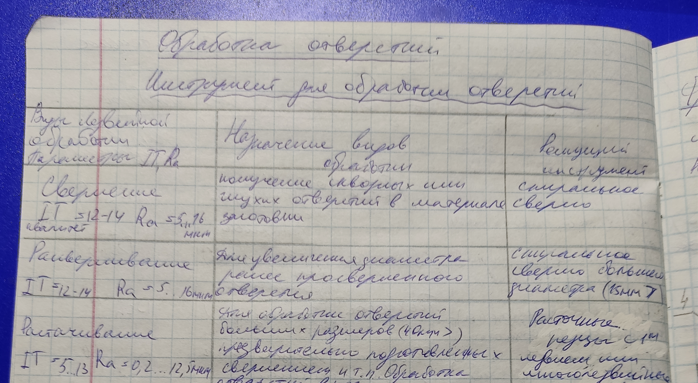 Обработка отверстий
Инструмент для обработки отверстий
Виды лезвийной
обработки
параметры IT, Ra
Назначение видов
обработки
Режущий
инструмент
Сверление
IT = 12-14 Ra = 5...16
квалитет мкм
получение сквозных или
глухих отверстий в материале
заготовки
спиральное
сверло
Рассверливание
IT = 12-14 Ra = 5...16мкм
Для увеличения диаметра
ранее просверленного
отверстия
спиральное
сверло большего
диаметра (15мм>)
Растачивание
IT = 5..13 Ra = 0,2...12,5мкм
Для обработки отверстий
больших размеров
предварительно подготовленных
сверлением и т.п. Обработка
Расточные
резцы с 1м
лезвием или
многолезвийный